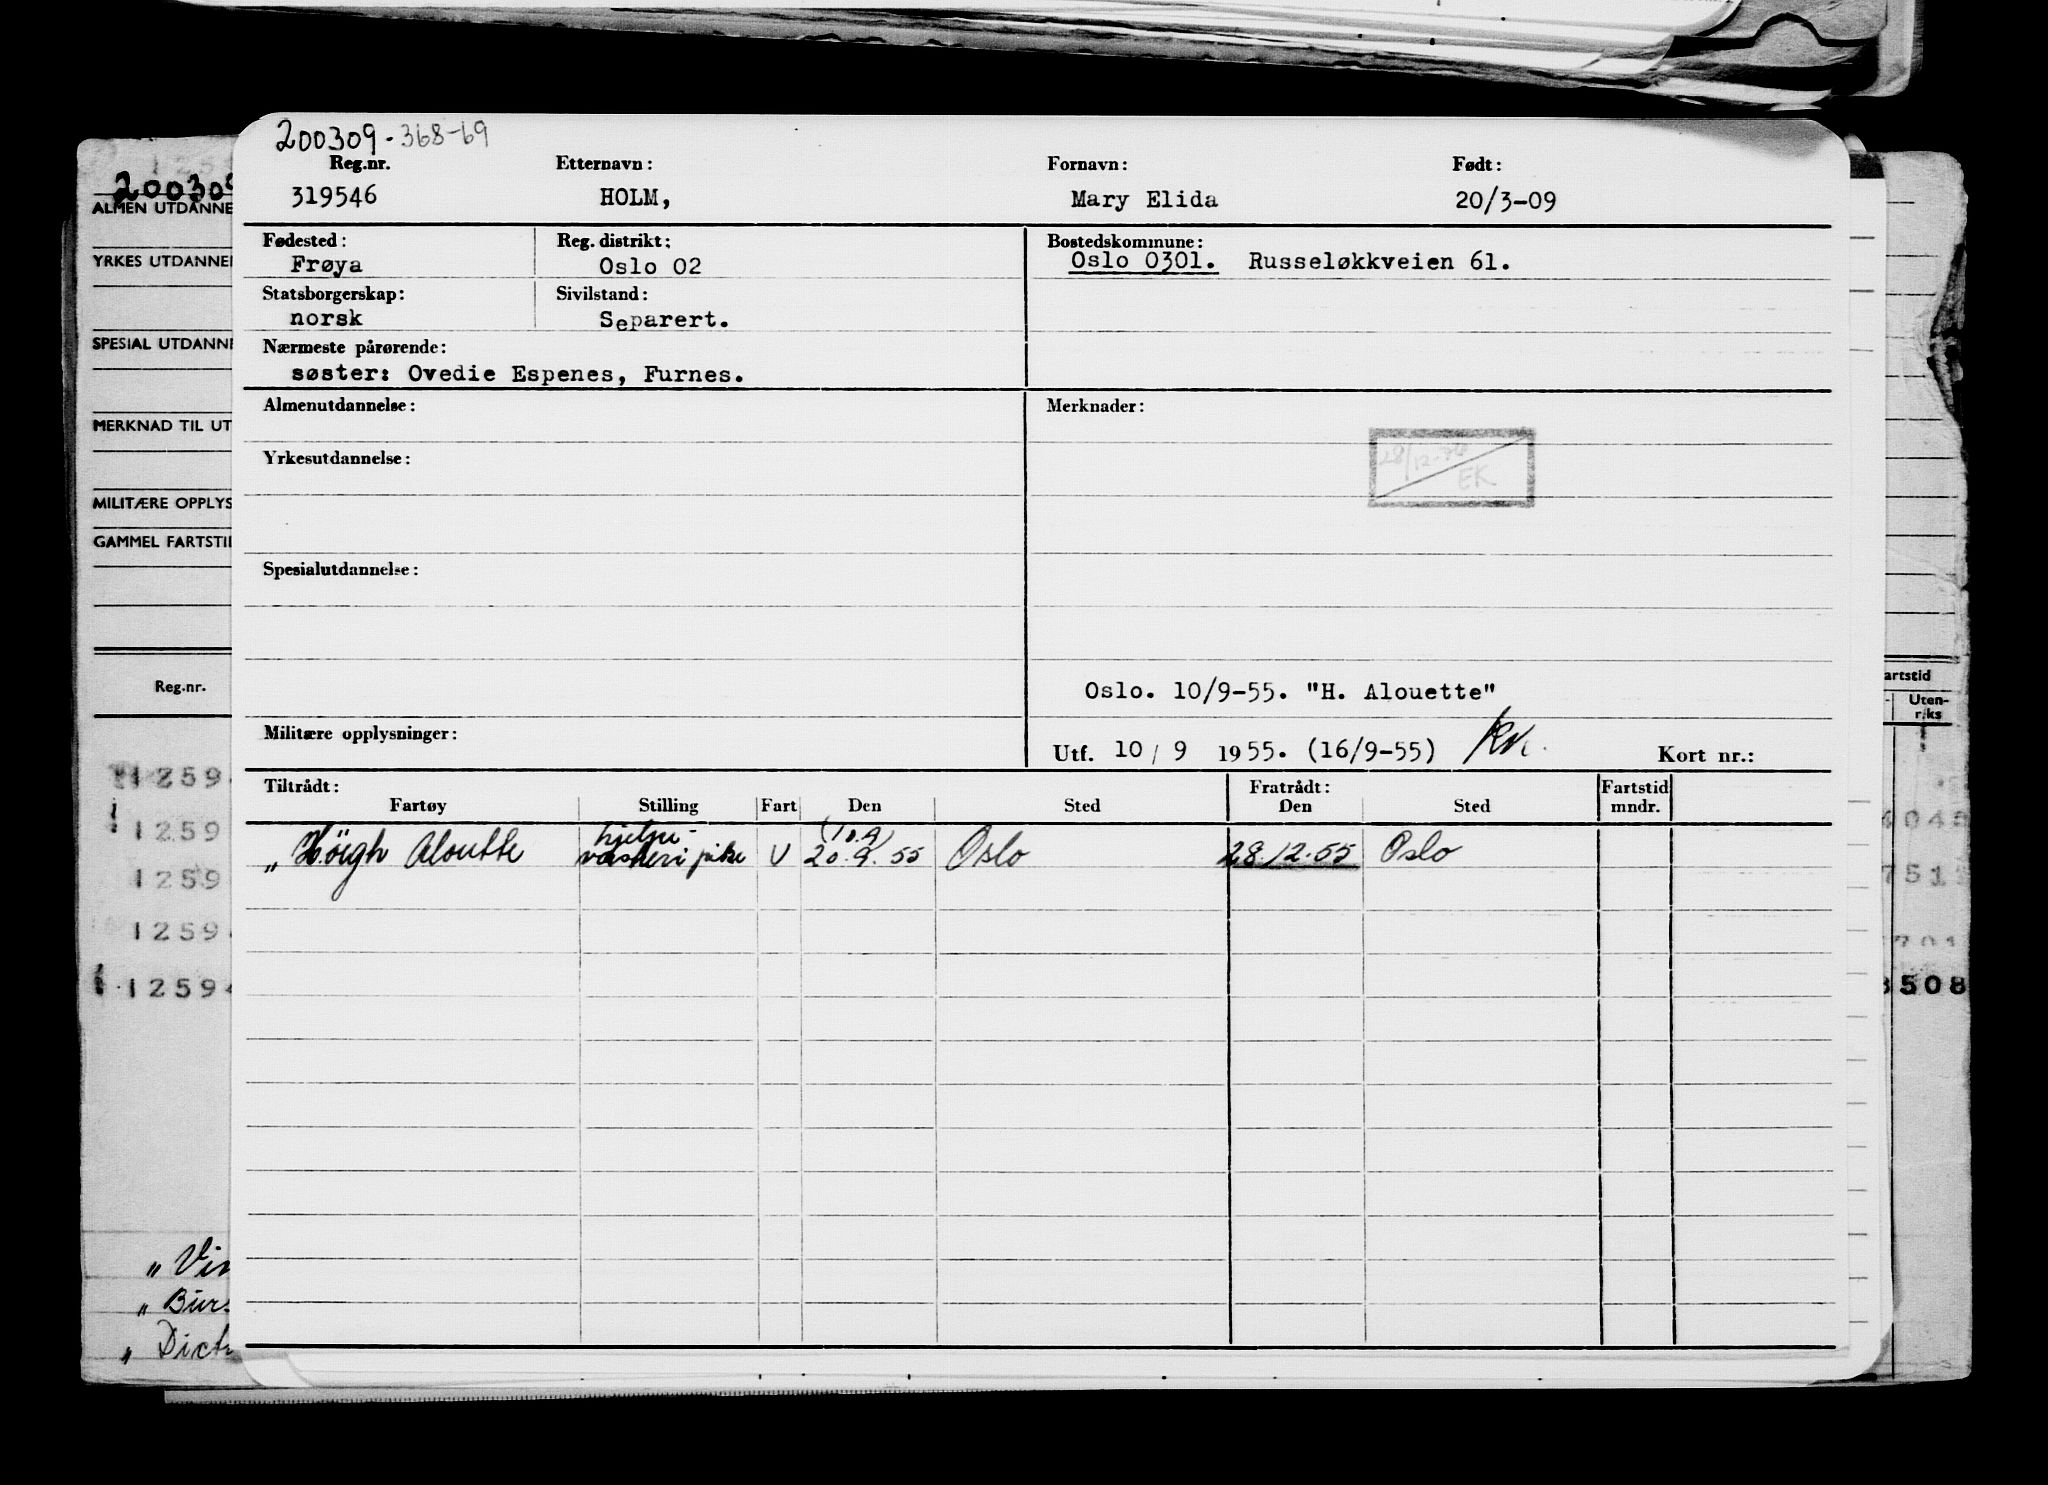 200309-368-69
Reg.nr. Etternavn: Fornavn: Født:
319546 HOLM, Mary Elida 20/3-09
Fødested: Reg. distrikt: Bostedskommune:
Frøya Oslo 02 Oslo 0301. Russeløkkveien 61.
Statsborgerskap: Sivilstand:
norsk Separert.
Nærmeste pårørende:
søster: Ovedie Espenes, Furnes.
Almenutdannelse: Merknader:
28/12-76
EK
Yrkesutdannelse:
Spesialutdannelse:
Oslo. 10/9-55. "H. Alouette"
Militære opplysninger:
Utf. 10/9 1955. (16/9-55) Kort nr.:
Tiltrådt: Fratrådt: Fartstid
Fartøy Stilling Fart Den Sted Den Sted mndr.
hjelpe- (10.9)
„ Höegh Aloutte vaskeri pike U 20.9.55 Oslo 28.12.55 Oslo
200309
ALMEN UTDANNE
YRKES UTDANNE
SPESIAL UTDANN
MERKNAD TIL UT
MILITÆRE OPPLYS
GAMMEL FARTSTI
Reg.nr. artstid
Uten-
riks
1259
1259 4045
1259 751
1259 701
12594 3508
„ Vin
„ Bur
„ Dict